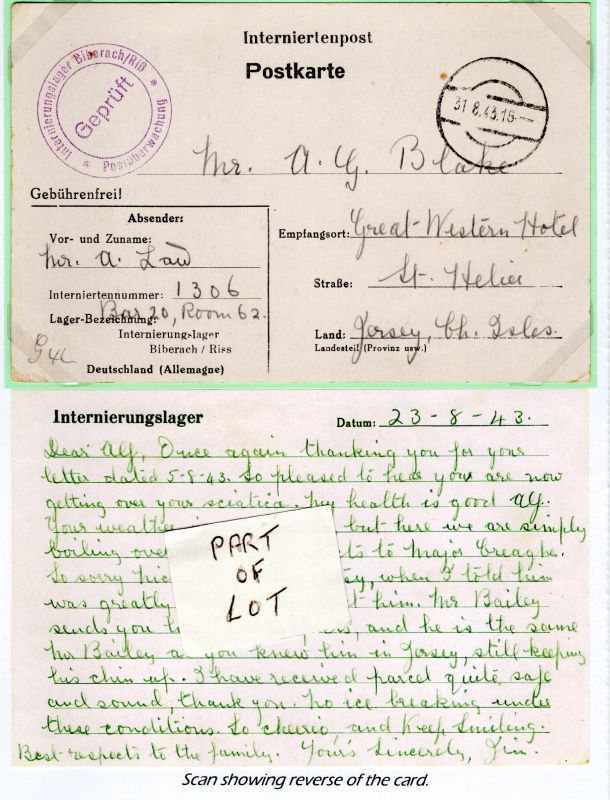 Interniertenpost
Postkarte
Internierungslager Biberach/Riß
Geprüft
Postüberwachung
31.8.43.15-
Mr. A. G. Blake
Gebührenfrei!
Absender:
Vor- und Zuname:
Mr. A. Law
Interniertennummer: 1306
Lager-Bezeichnung: Bar 20, Room 62.
Internierungs-lager
Biberach / Riss
Deutschland (Allemagne)
Empfangsort: Great-Western Hotel
Straße: St. Helier
Land: Jersey, Ch. Isles.
Landesteil (Provinz usw.)
Internierungslager
Datum: 23-8-43.
Dear Alf, Once again thanking you for your
letter dated 5-8-43. So pleased to hear your are now
getting over your sciatica. My health is good Alf.
Your weather but here we are simply
boiling over to Major Creaghe.
So sorry when I told him
was greatly him. Mr Bailey
sends you and he is the same
Mr Bailey as you knew him in Jersey, still keeping
his chin up. I have received parcel quite safe
and sound, thank you. No ice breaking under
these conditions. So cheerio, and Keep Smiling.
Best respects to the family. Yours Sincerely, Jim.
PART
OF
LOT
Scan showing reverse of the card.